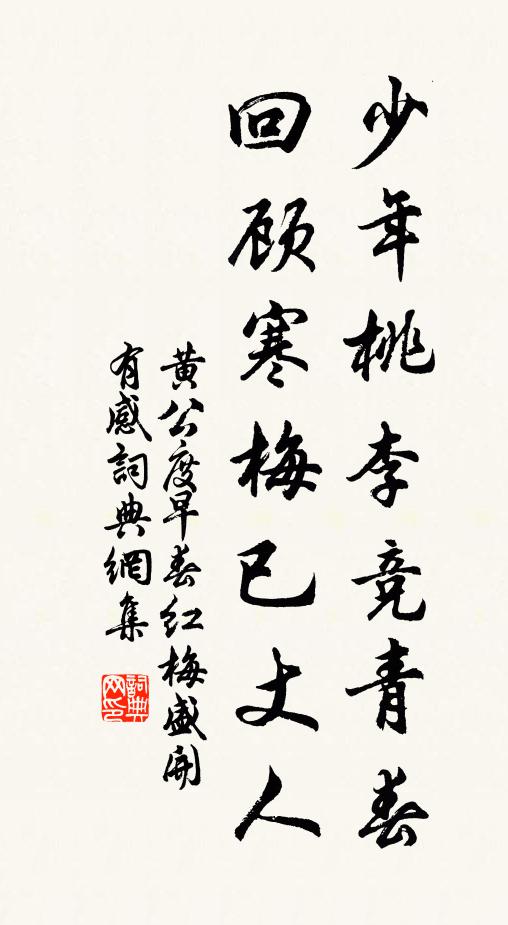 少年桃李竞青春
回顾寒梅已丈人
黄公度早春红梅盛開
有感詞典網集
詞典网印